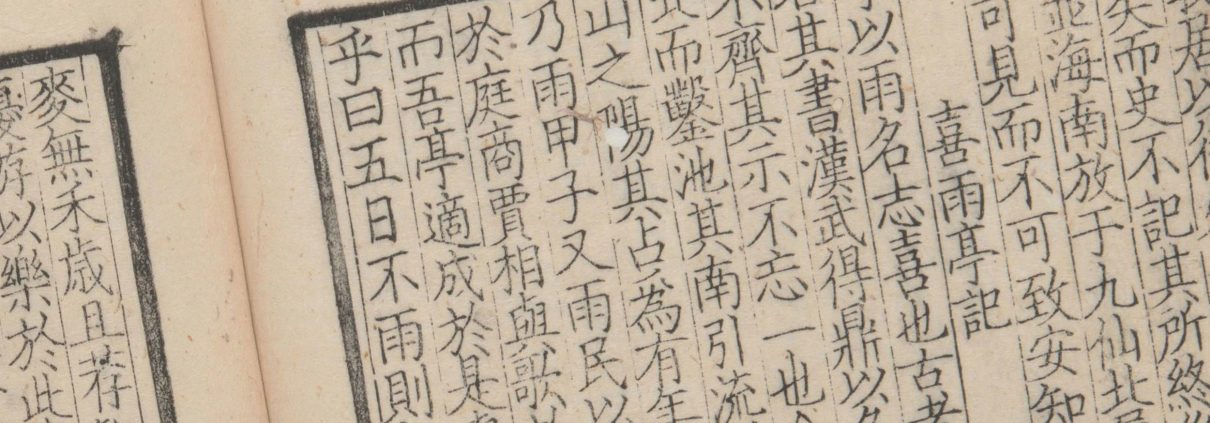 矣而史不記其所終
海南放于九仙北
可見而不可致安知
喜雨亭記
以雨名志喜也古者
其書漢武得鼎以名
不齊其示不忘一也
而鑿池其南引流
山之陽其占為有年
乃雨甲子又雨民以
於庭商賈相與歌
而吾亭適成於是
乎曰五日不雨則
麥無禾歲且荐
以樂於此